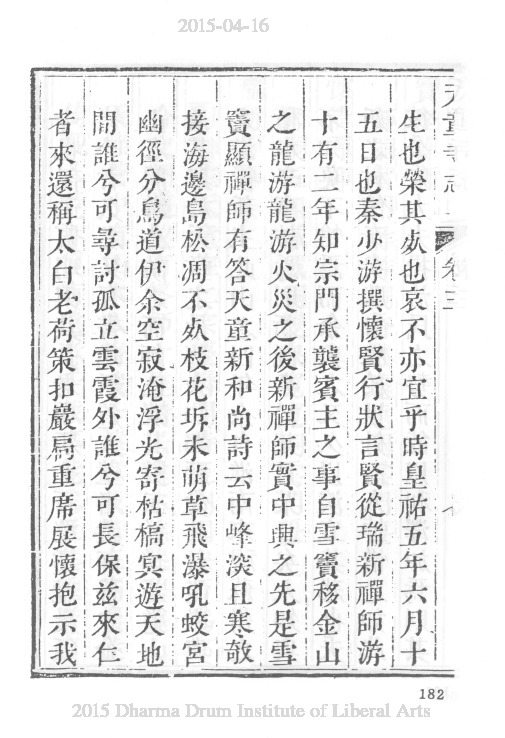 2015-04-16
天童寺志 卷三
生也榮其㱙也哀不亦宜乎時皇祐五年六月十
五日也秦少游撰懷賢行狀言賢從瑞新禪師游
十有二年知宗門承襲賓主之事自雪竇移金山
之龍游龍游火災之後新禪師實中興之先是雪
竇顯禪師有答天童新和尚詩云中峰淡且寒欹
接海邊島松凋不㱙枝花坼未萌草飛瀑吼蛟宮
幽徑分鳥道伊余空寂淹浮光寄枯槁㝠遊天地
間誰兮可尋討孤立雲霞外誰兮可長保兹來仁
者來還稱太白老荷策扣巖扃重席展懷抱示我
182
2015 Dharma Drum Institute of Liberal Arts